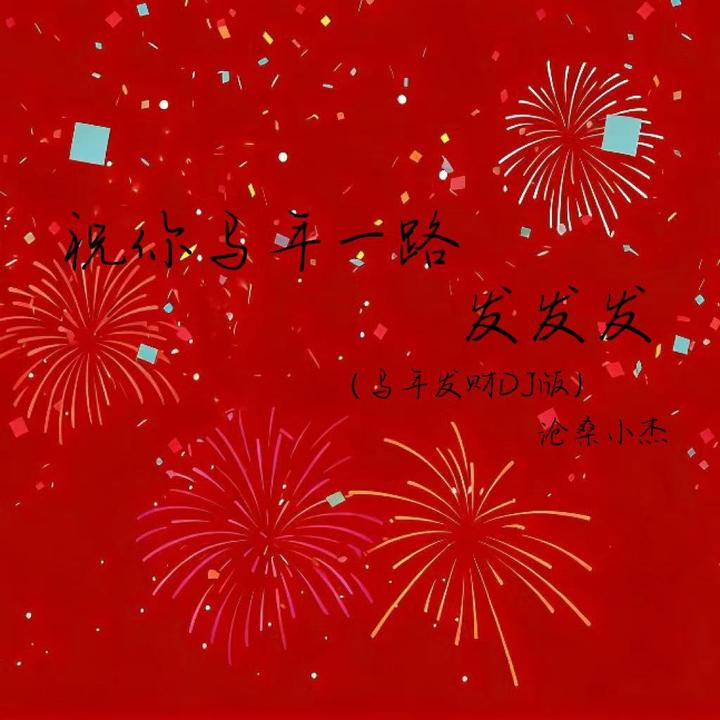 祝你马年一路
发发发
(马年发财DJ版)
沧桑小杰